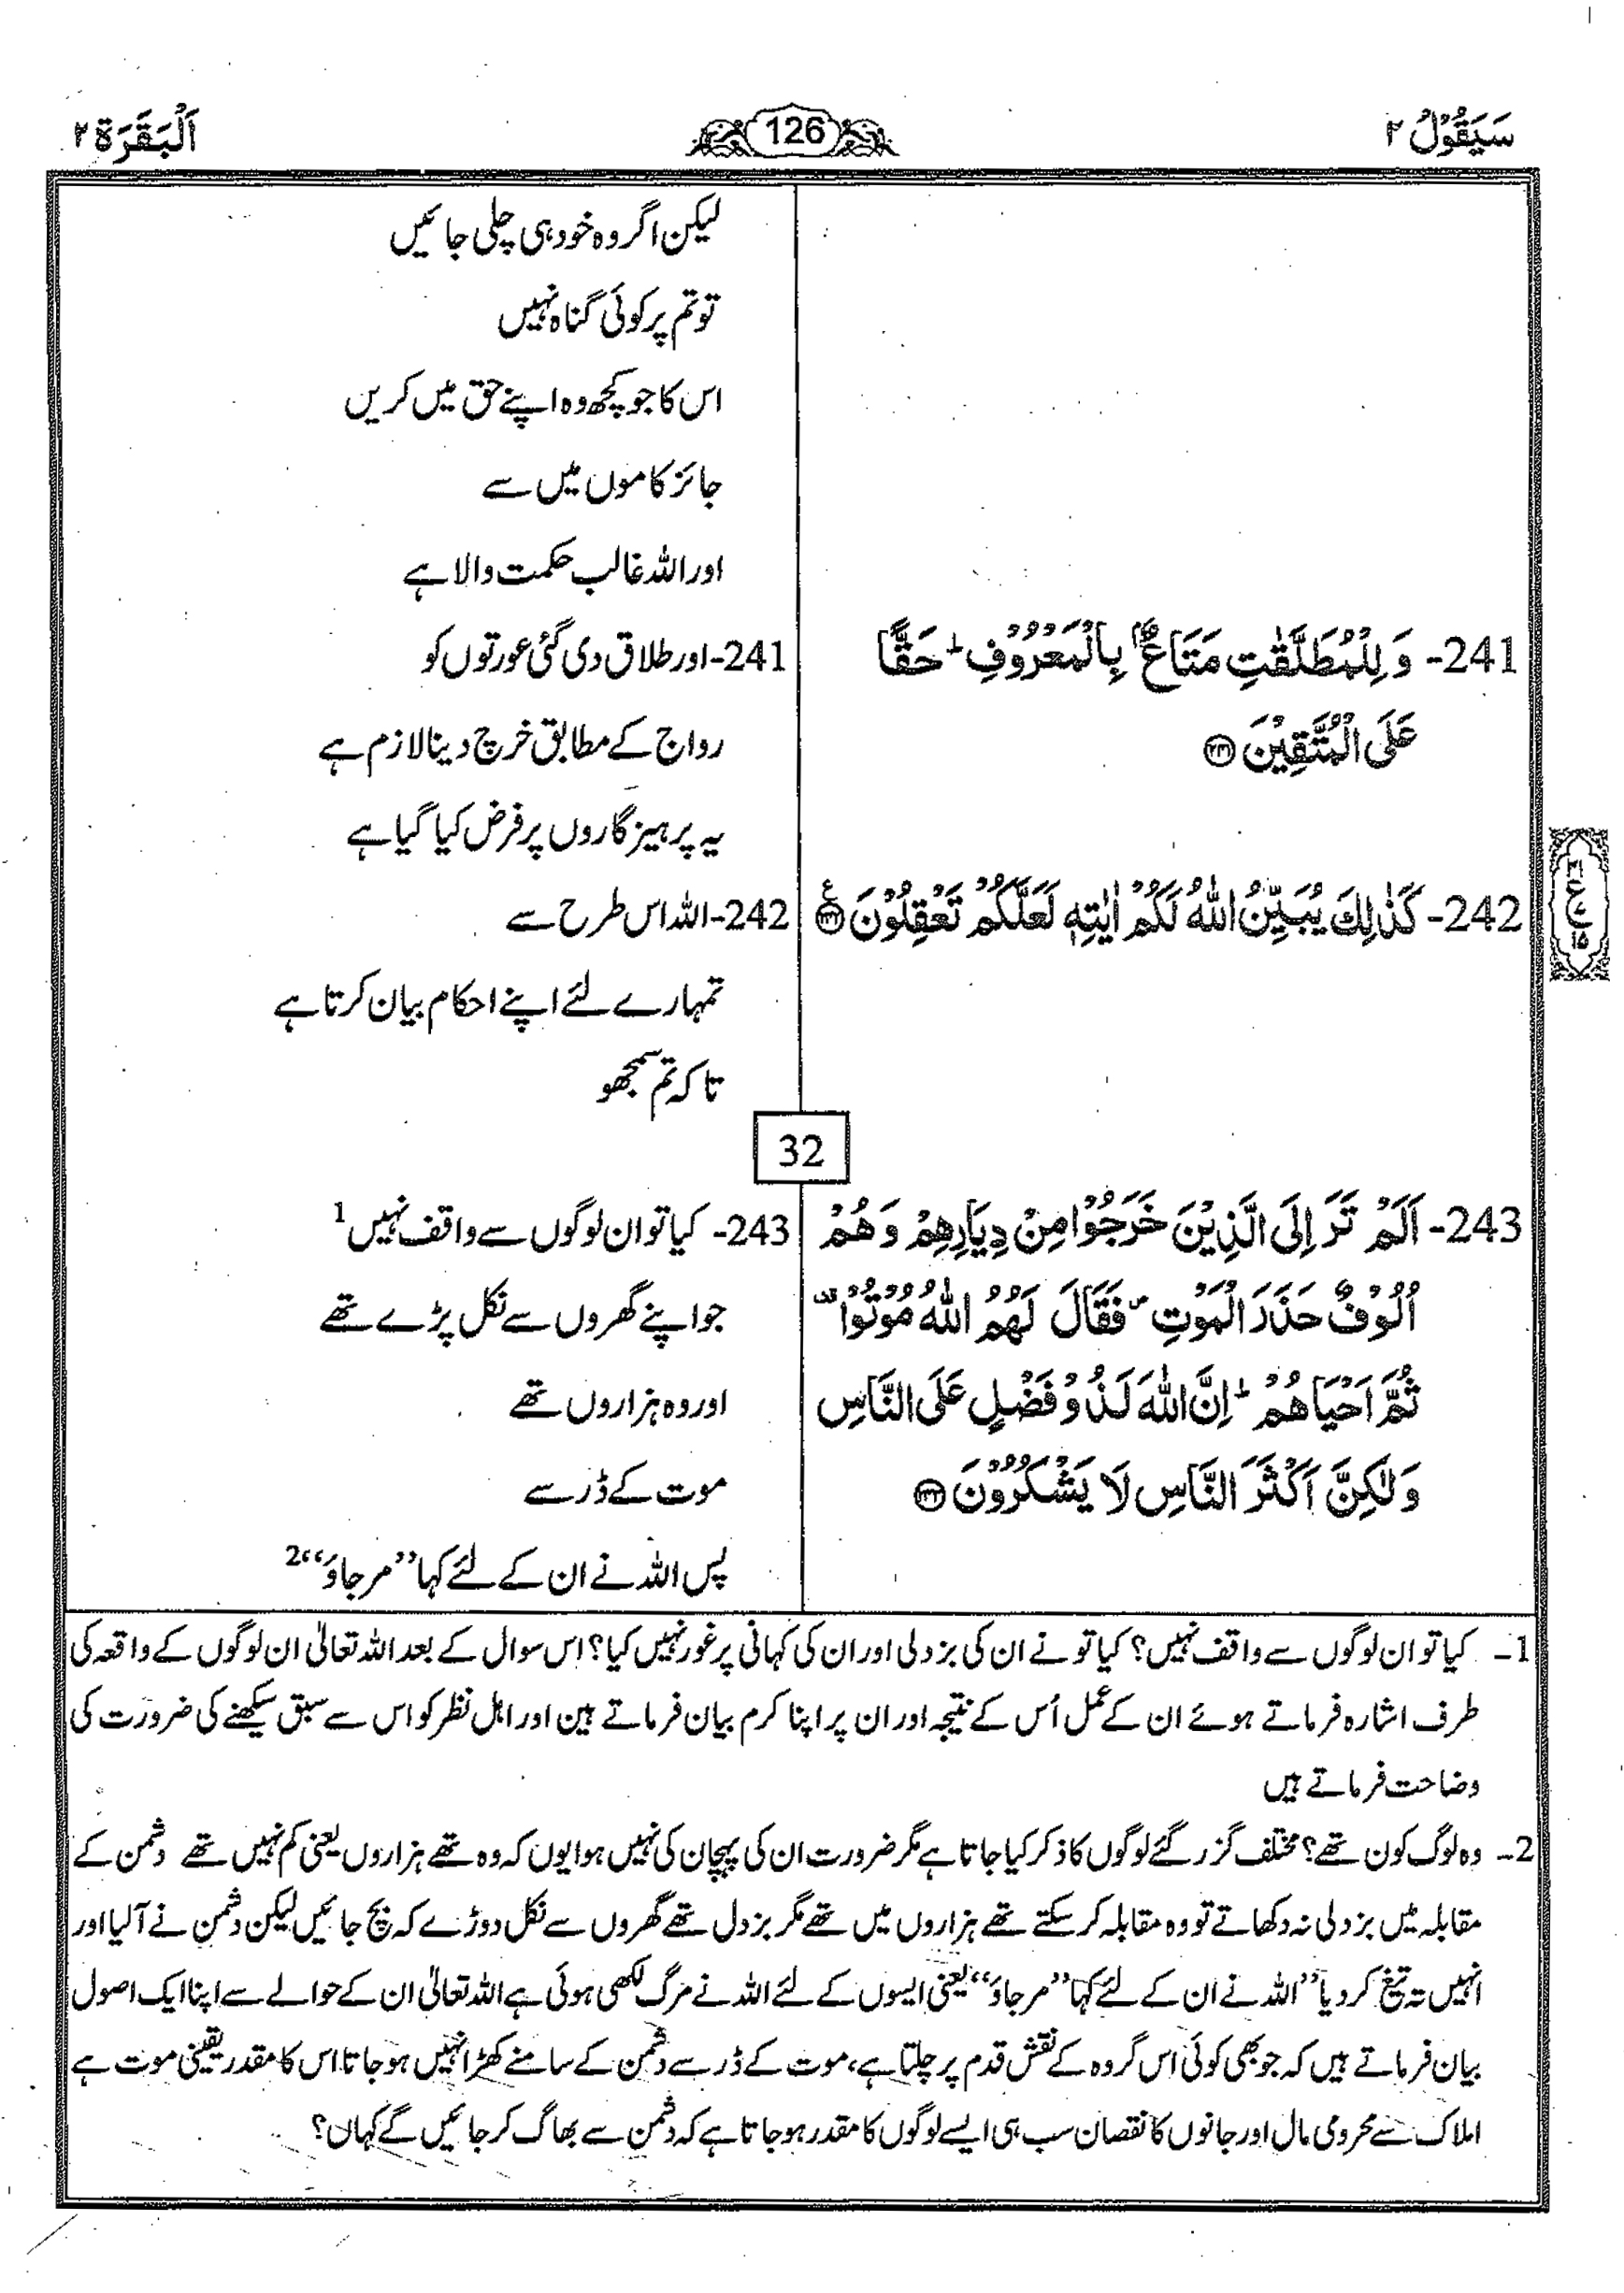 سَيَقُوْلُ ۲
126
اَلْبَقَرَة ۲
لیکن اگر وہ خود ہی چلی جائیں
تو تم پر کوئی گناہ نہیں
اس کا جو کچھ وہ اپنے حق میں کریں
جائز کاموں میں سے
اور اللہ غالب حکمت والا ہے
241- وَ لِلْمُطَلَّقٰتِ مَتَاعٌۢ بِالْمَعْرُوْفِ ؕ حَقًّا
عَلَى الْمُتَّقِيْنَ ﴿۲۴۱﴾
241- اور طلاق دی گئی عورتوں کو
رواج کے مطابق خرچ دینا لازم ہے
یہ پرہیزگاروں پر فرض کیا گیا ہے
242- كَذٰلِكَ يُبَيِّنُ اللّٰهُ لَكُمْ اٰيٰتِهٖ لَعَلَّكُمْ تَعْقِلُوْنَ ﴿۲۴۲﴾ ع
242- اللہ اس طرح سے
تمہارے لئے اپنے احکام بیان کرتا ہے
تا کہ تم سمجھو
ع
۱۵
32
243- اَلَمْ تَرَ اِلَى الَّذِيْنَ خَرَجُوْا مِنْ دِيَارِهِمْ وَ هُمْ
اُلُوْفٌ حَذَرَ الْمَوْتِ ۪ فَقَالَ لَهُمُ اللّٰهُ مُوْتُوْا ۫
ثُمَّ اَحْيَاهُمْ ؕ اِنَّ اللّٰهَ لَذُوْ فَضْلٍ عَلَى النَّاسِ
وَ لٰكِنَّ اَكْثَرَ النَّاسِ لَا يَشْكُرُوْنَ ﴿۲۴۳﴾
243- کیا تو ان لوگوں سے واقف نہیں 1
جو اپنے گھروں سے نکل پڑے تھے
اور وہ ہزاروں تھے
موت کے ڈر سے
پس اللہ نے ان کے لئے کہا ”مر جاؤ“ 2
1۔ کیا تو ان لوگوں سے واقف نہیں؟ کیا تو نے ان کی بزدلی اور ان کی کہانی پر غور نہیں کیا؟ اس سوال کے بعد اللہ تعالیٰ ان لوگوں کے واقعہ کی
طرف اشارہ فرماتے ہوئے ان کے عمل اُس کے نتیجہ اور ان پر اپنا کرم بیان فرماتے ہین اور اہل نظر کو اس سے سبق سیکھنے کی ضرورت کی
وضاحت فرماتے ہیں
2۔ وہ لوگ کون تھے؟ مختلف گزر گئے لوگوں کا ذکر کیا جاتا ہے مگر ضرورت ان کی پہچان کی نہیں ہوا یوں کہ وہ تھے ہزاروں یعنی کم نہیں تھے دشمن کے
مقابلہ میں بزدلی نہ دکھاتے تو وہ مقابلہ کر سکتے تھے ہزاروں میں تھے مگر بزدل تھے گھروں سے نکل دوڑے کہ بچ جائیں لیکن دشمن نے آلیا اور
انہیں تہ تیغ کر دیا ”اللہ نے ان کے لئے کہا ”مر جاؤ“ یعنی ایسوں کے لئے اللہ نے مرگ لکھی ہوئی ہے اللہ تعالیٰ ان کے حوالے سے اپنا ایک اصول
بیان فرماتے ہیں کہ جو بھی کوئی اس گروہ کے نقش قدم پر چلتا ہے، موت کے ڈر سے دشمن کے سامنے کھڑا نہیں ہو جاتا، اس کا مقدر یقینی موت ہے
املاک سے محرومی مال اور جانوں کا نقصان سب ہی ایسے لوگوں کا مقدر ہو جاتا ہے کہ دشمن سے بھاگ کر جائیں گے کہاں؟